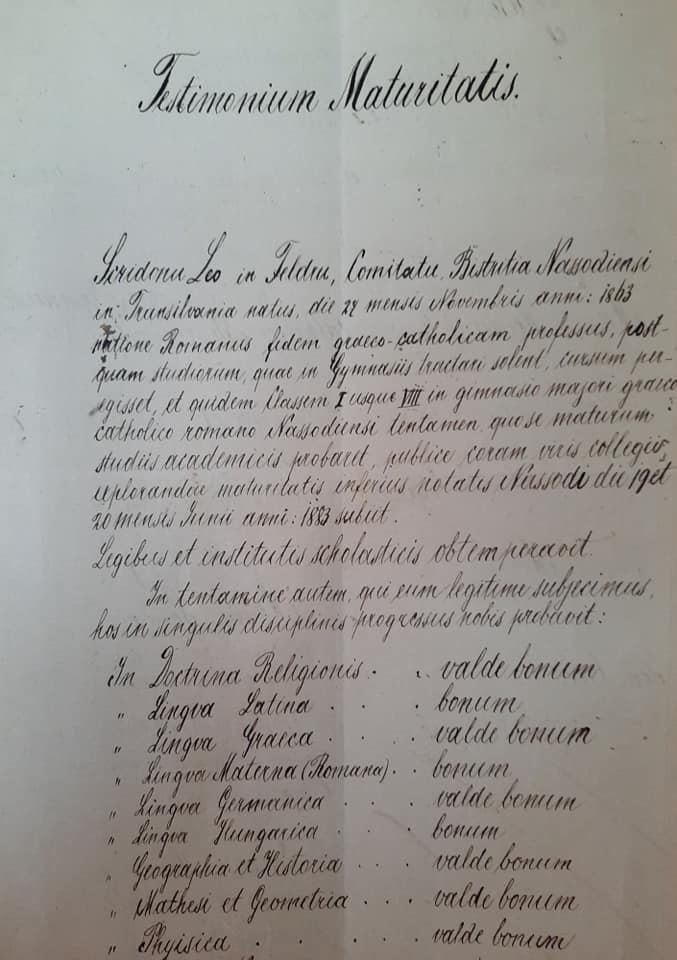 Testimonium Maturitatis.
Scridonu Leo in Feldru, Comitatu Bistritia Nassodiensi
in Transilvania natus, die 27 mensis Novembris anni: 1863
natione Romanus fidem graeco-catholicam professus, post-
quam studiorum, quae in Gymnasiis tractari solent, cursum per-
egisset, et quidem Classem I usque VIII in gimnasio majori graeco
catholico romano Nassodiensi tentamen, quo se maturum
studiis academicis probaret, publice coram viris collegii,
explorandae maturitatis inferius notatis Nassodi die 19 et
20 mensis Junii anni: 1883 subiit.
Legibus et institutis scholasticis obtemperavit.
In tentamine autem, qui eum legitime subjecimus,
hos in singulis disciplinis progressus nobis probavit:
In Doctrina Religionis . . valde bonum
" Lingva Latina . . . bonum
" Lingva Graeca . . . valde bonum
" Lingva Materna (Romana) . . bonum
" Lingva Germanica . . . valde bonum
" Lingva Hungarica . . . bonum
" Geographia et Historia . . . valde bonum
" Mathesi et Geometria . . . valde bonum
" Phyisica . . . . valde bonum